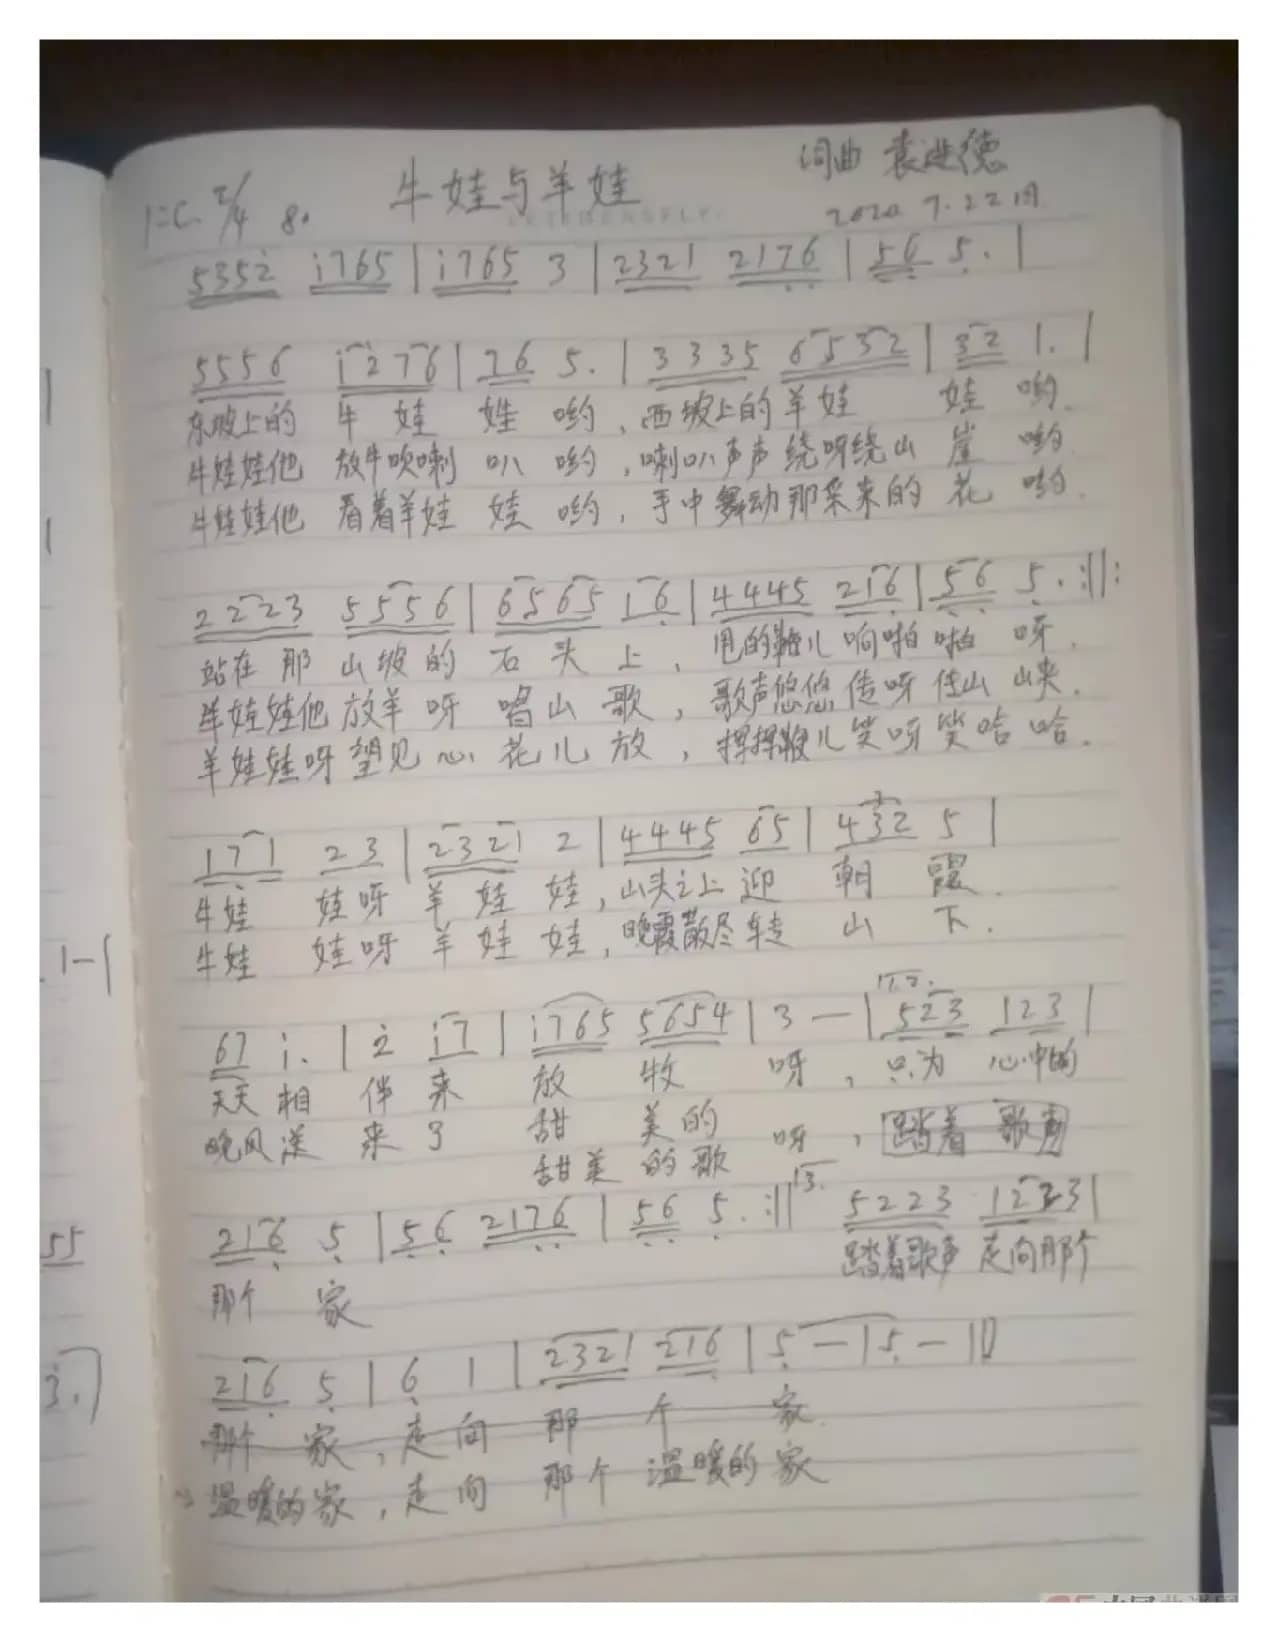 牛娃与羊娃
词曲 袁进德
1=C 2/4 8.
2020 7.22日
5352̇ i̇765 | i̇765 3 | 2321 2176 | 56 5. |
5556 i̇2̇76 | 76 5. | 3335 6532 | 32 1. |
东坡上的 牛 娃 娃 哟,西坡上的羊娃 娃 哟.
牛娃娃他 放牛吹喇 叭 哟,喇叭声声绕呀绕山 崖 哟.
牛娃娃他 看着羊娃 娃 哟,手中舞动那采来的 花 哟.
2223 5556 | 6565 16 | 4445 216 | 56 5. :||:
站在 那 山坡的 石 头 上,甩的鞭儿响啪啪 呀.
羊娃娃他放羊呀 唱山 歌,歌声悠悠传呀传山 峡.
羊娃娃呀望见心 花儿 放,挥挥鞭儿笑呀笑哈 哈.
171 23 | 2321 2 | 4445 65 | 432 5 |
牛娃 娃呀 羊 娃 娃,山头之上迎 朝 霞.
牛娃 娃呀 羊 娃 娃,晚霞散尽转 山 下.
1.2.
67 i̇. | 2̇ i̇7 | i̇765 5654 | 3 — | 523 123 |
天天 相 伴 来 放 牧 呀,只为 心中的
晚风送 来 了 甜 美的 呀,踏着 歌声
甜美 的歌
13.
216 5 | 56 2176 | 56 5. :|| 5223 1223 |
踏着歌声 走向那个
那个 家
216 5 | 6 1 | 2321 216 | 5 — | 5 — ||
那个 家,走 向 那 个 家.
温暖的家,走 向 那个 温暖的家
1—|
55
3.)